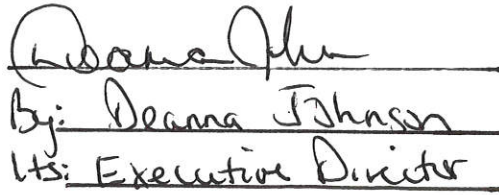 Deanna John
By: Deanna Johnson
Its: Executive Director